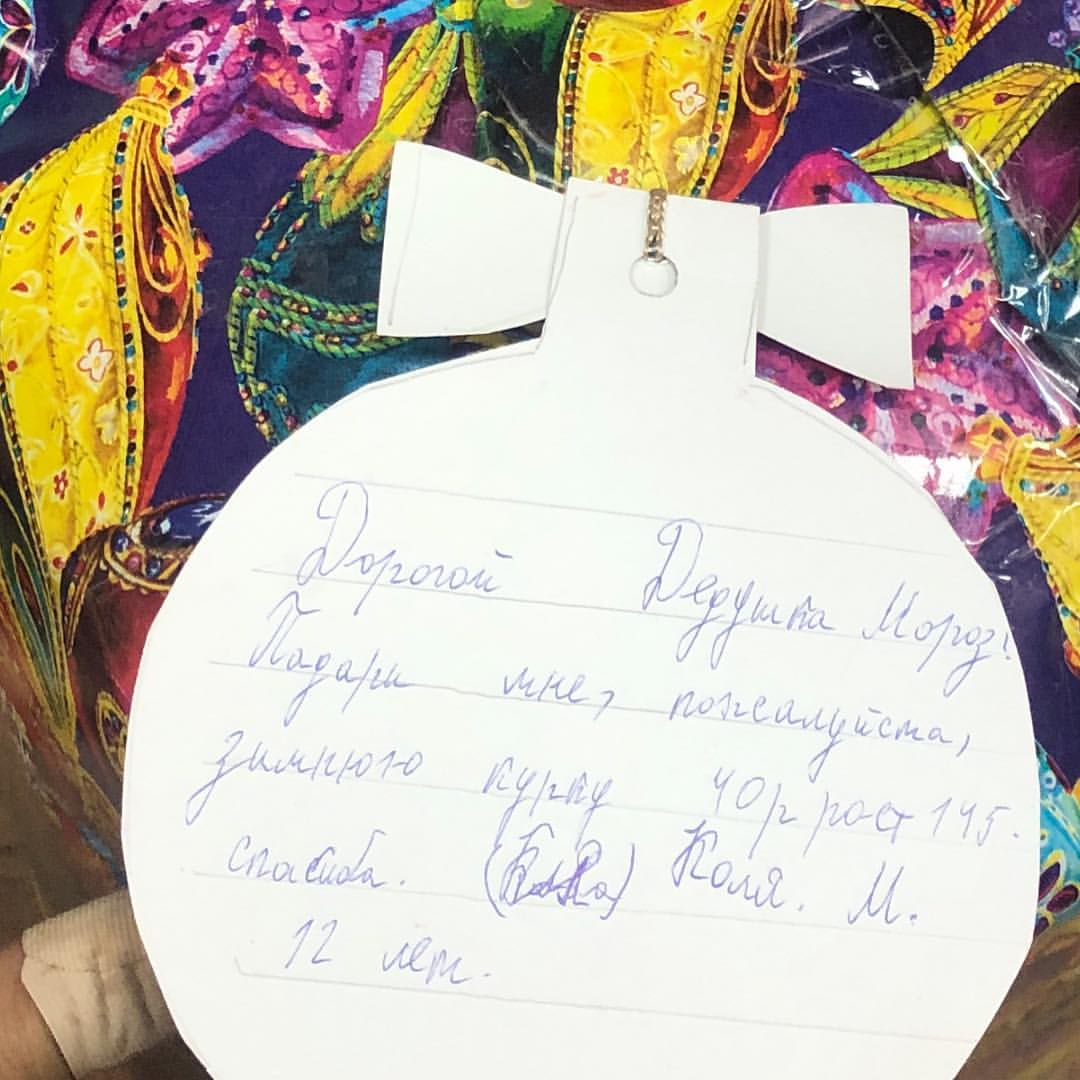 Дорогой Дедушка Мороз!
Подари мне, пожалуйста,
зимнюю курку 40р рост 145.
спасиба. Коля. М.
12 лет.